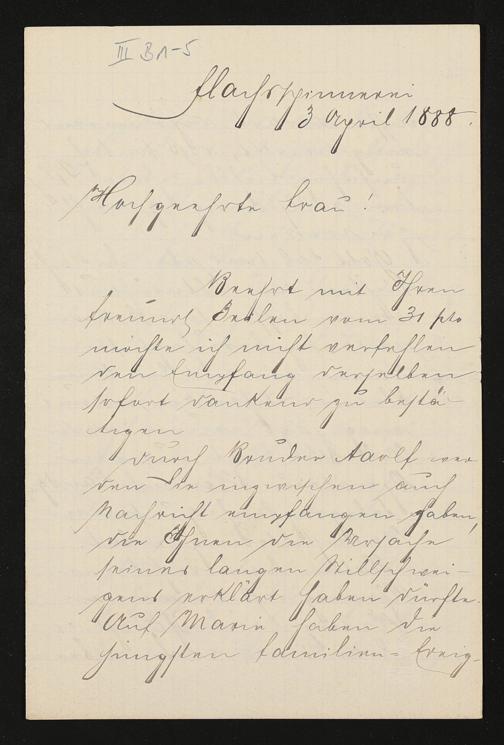 III B 1-5
Flachsspinnerei
3 April 1888.
Hochgeehrte Frau!
Beehrt mit Ihren
freundl Zeilen vom 31 pto
möchte ich nicht verfehlen
den Empfang derselben
sofort dankend zu bestä-
tigen
Durch Bruder Adolf wer
den Sie inzwischen auch
Nachricht empfangen haben,
die Ihnen die Ursache
seines langen Stillschwei-
gens erklärt haben dürfte.
Auf Marie haben die
jüngsten Familien-Ereig-